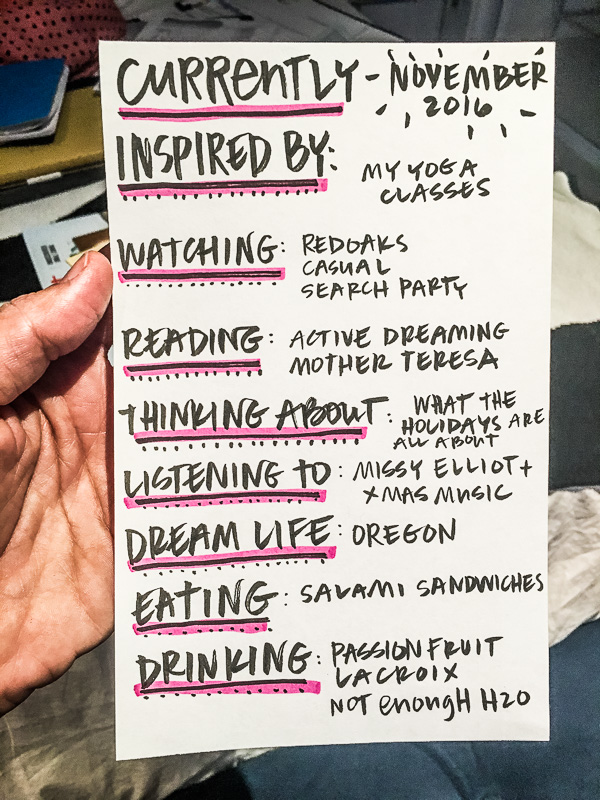 CURRENTLY - NOVEMBER
2016
INSPIRED BY: MY YOGA
CLASSES
WATCHING: REDOAKS
CASUAL
SEARCH PARTY
READING: ACTIVE DREAMING
MOTHER TERESA
THINKING ABOUT: WHAT THE
HOLIDAYS ARE
ALL ABOUT
LISTENING TO: MISSY ELLIOT +
XMAS MUSIC
DREAM LIFE: OREGON
EATING: SALAMI SANDWICHES
DRINKING: PASSION FRUIT
LACROIX
NOT enougH H2O